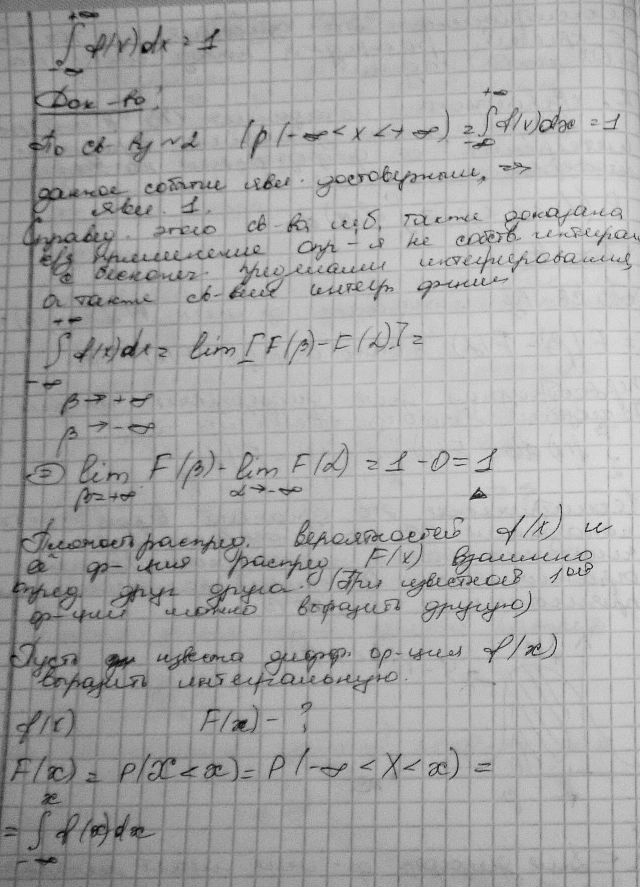 +∞
∫ f(x)dx = 1
-∞
Док-во:
По св-ву №2 (p(-∞<x<+∞) = ∫ f(x)dx = 1
+∞
-∞
данное событие явл. достоверным, =>
явл. 1.
Справед. этого св-ва м.б. также доказана
применение опр-я не собств. интеграл
с бесконеч. пределами интегрирования,
а также св-вия интегр. функц
+∞
∫ f(x)dx = lim[F(β)-F(α)] =
-∞
β→+∞
β→-∞
= lim F(β) - lim F(α) = 1-0=1
β=+∞ α→-∞
Плотность распред. вероятностей f(x) и
её ф-ция распред F(x) взаимно
опред. друг друга. (При известной 1ой
ф-ции можно выразить другую)
Пусть известна дифф. ф-ция f(x)
выразить интегральную.
f(x) F(x) - ?
F(x) = P(X<x) = P(-∞<X<x) =
x
= ∫ f(x)dx
-∞